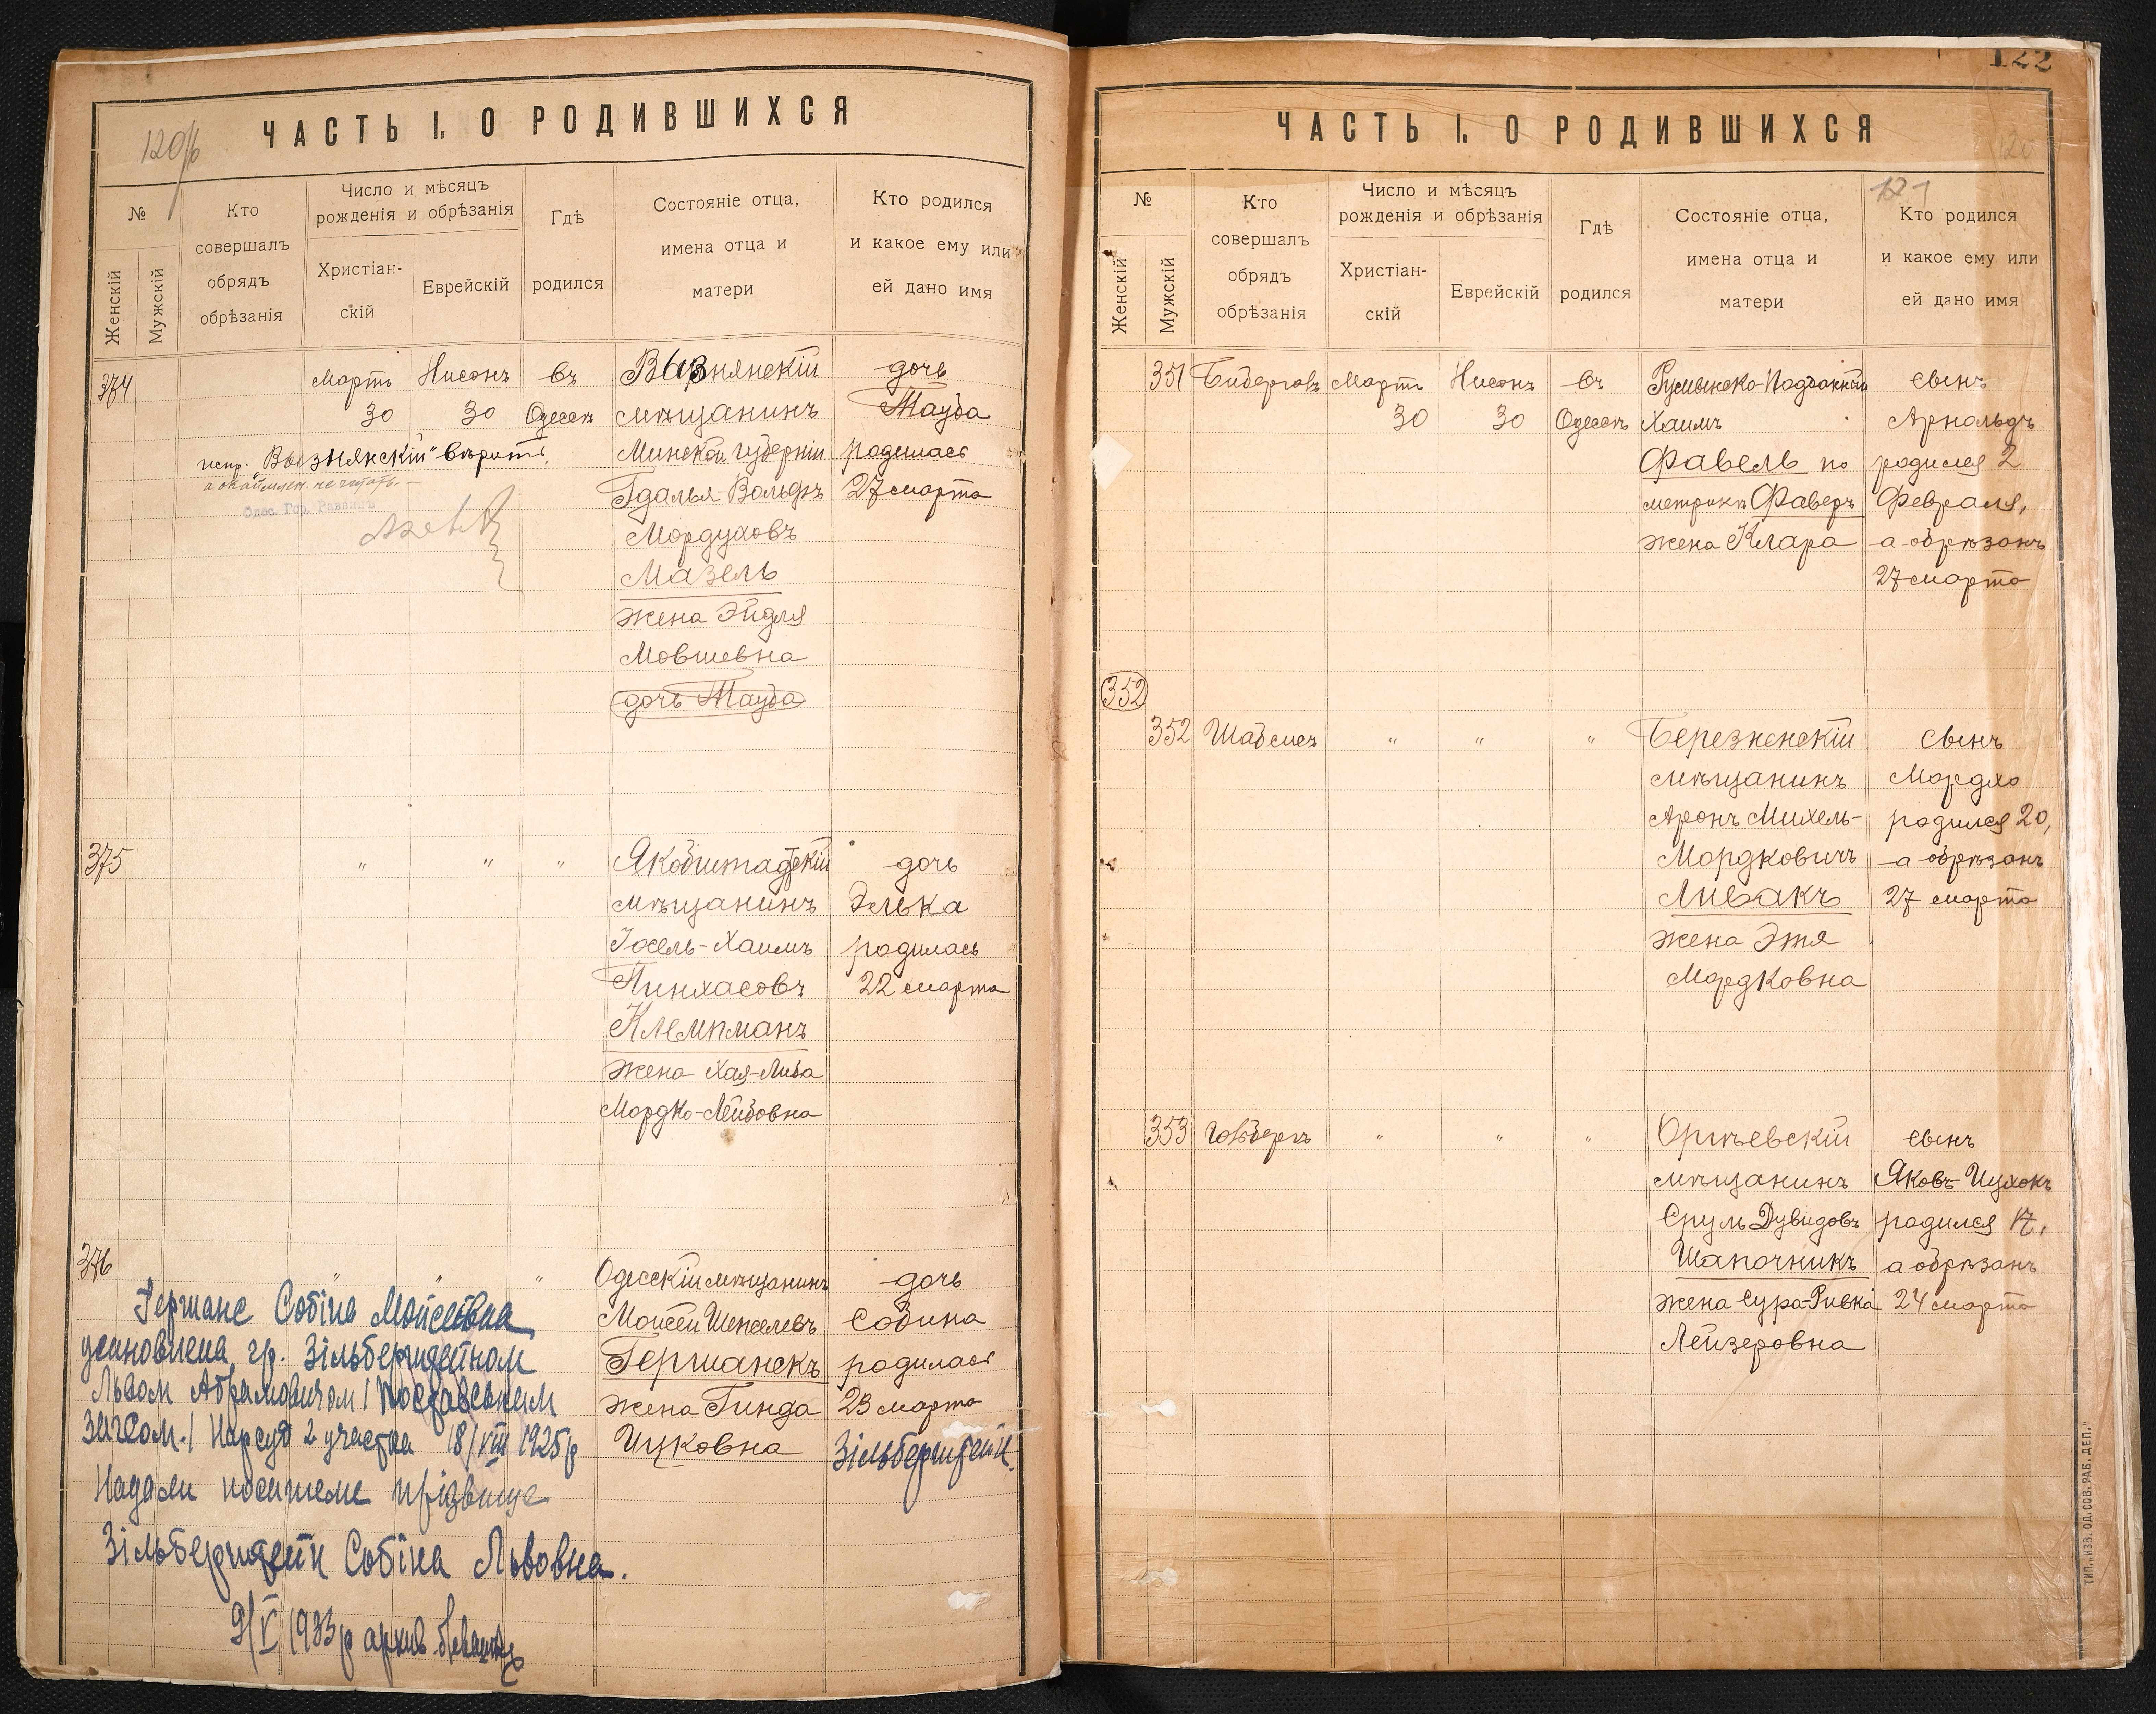 120/б
ЧАСТЬ I. О РОДИВШИХСЯ
№
Женскій
Мужскій
Кто
совершалъ
обрядъ
обрѣзанія
Число и мѣсяцъ
рожденія и обрѣзанія
Христіан-
скій
Еврейскій
Гдѣ
родился
Состояніе отца,
имена отца и
матери
Кто родился
и какое ему или
ей дано имя
374
Мартъ
30
Нисонъ
30
Въ
Одессѣ
Вызнянскій
мѣщанинъ
Минской губерніи
Гдалья-Вольфъ
Мордуховъ
Мазель
жена Эйдля
Мовшевна
дочь Тауба
дочь
Тауба
родилась
27 марта
испр. "Вызнянскій" вѣрить,
а окаймлен. не читать. —
Одес. Гор. Раввинъ
375
" " "
Якобштадскій
мѣщанинъ
Іосель-Хаимъ
Пинхасовъ
Клемпманъ
жена Хая-Либа
Мордко-Лейбовна
дочь
Элька
родилась
22 марта
376
" " "
Одесскій мѣщанинъ
Моисей Шенселевъ
Германскъ
жена Гинда
Ицковна
дочь
Собина
родилась
23 марта
Зільберштейн.
Германс Собіна Мойсеевна
усиновлена гр. Зільберштейном
Львом Абрамовичом
Загсом. / Нарсуд 2 участка 18/VIII 1925 р
Надалі носитеме прізвище
Зільберштейн Собіна Львовна.
9/V 1933 р архив.
122
ЧАСТЬ I. О РОДИВШИХСЯ
121
№
Женскій
Мужскій
Кто
совершалъ
обрядъ
обрѣзанія
Число и мѣсяцъ
рожденія и обрѣзанія
Христіан-
скій
Еврейскій
Гдѣ
родился
Состояніе отца,
имена отца и
матери
Кто родился
и какое ему или
ей дано имя
351
Мартъ
30
Нисонъ
30
Въ
Одессѣ
Румынско-Подданный
Хаимъ
Фавель по
метрикѣ Фаверъ
жена Клара
сынъ
Арнольдъ
родился 2
Февраля,
а обрѣзанъ
27 марта
352
352
" " "
Березненскій
мѣщанинъ
Аронъ Михель-
Мордковичъ
Ливакъ
жена Этя
Мордковна
сынъ
Мордко
родился 20,
а обрѣзанъ
27 марта
353
" " "
Оргѣевскій
мѣщанинъ
Сруль Дувидовъ
Шапочникъ
жена Сура-Ривка
Лейзеровна
сынъ
Яковъ-Ицхокъ
родился 17,
а обрѣзанъ
24 марта
ТИП. „ИЗВ. ОД. СОВ. РАБ. ДЕП."